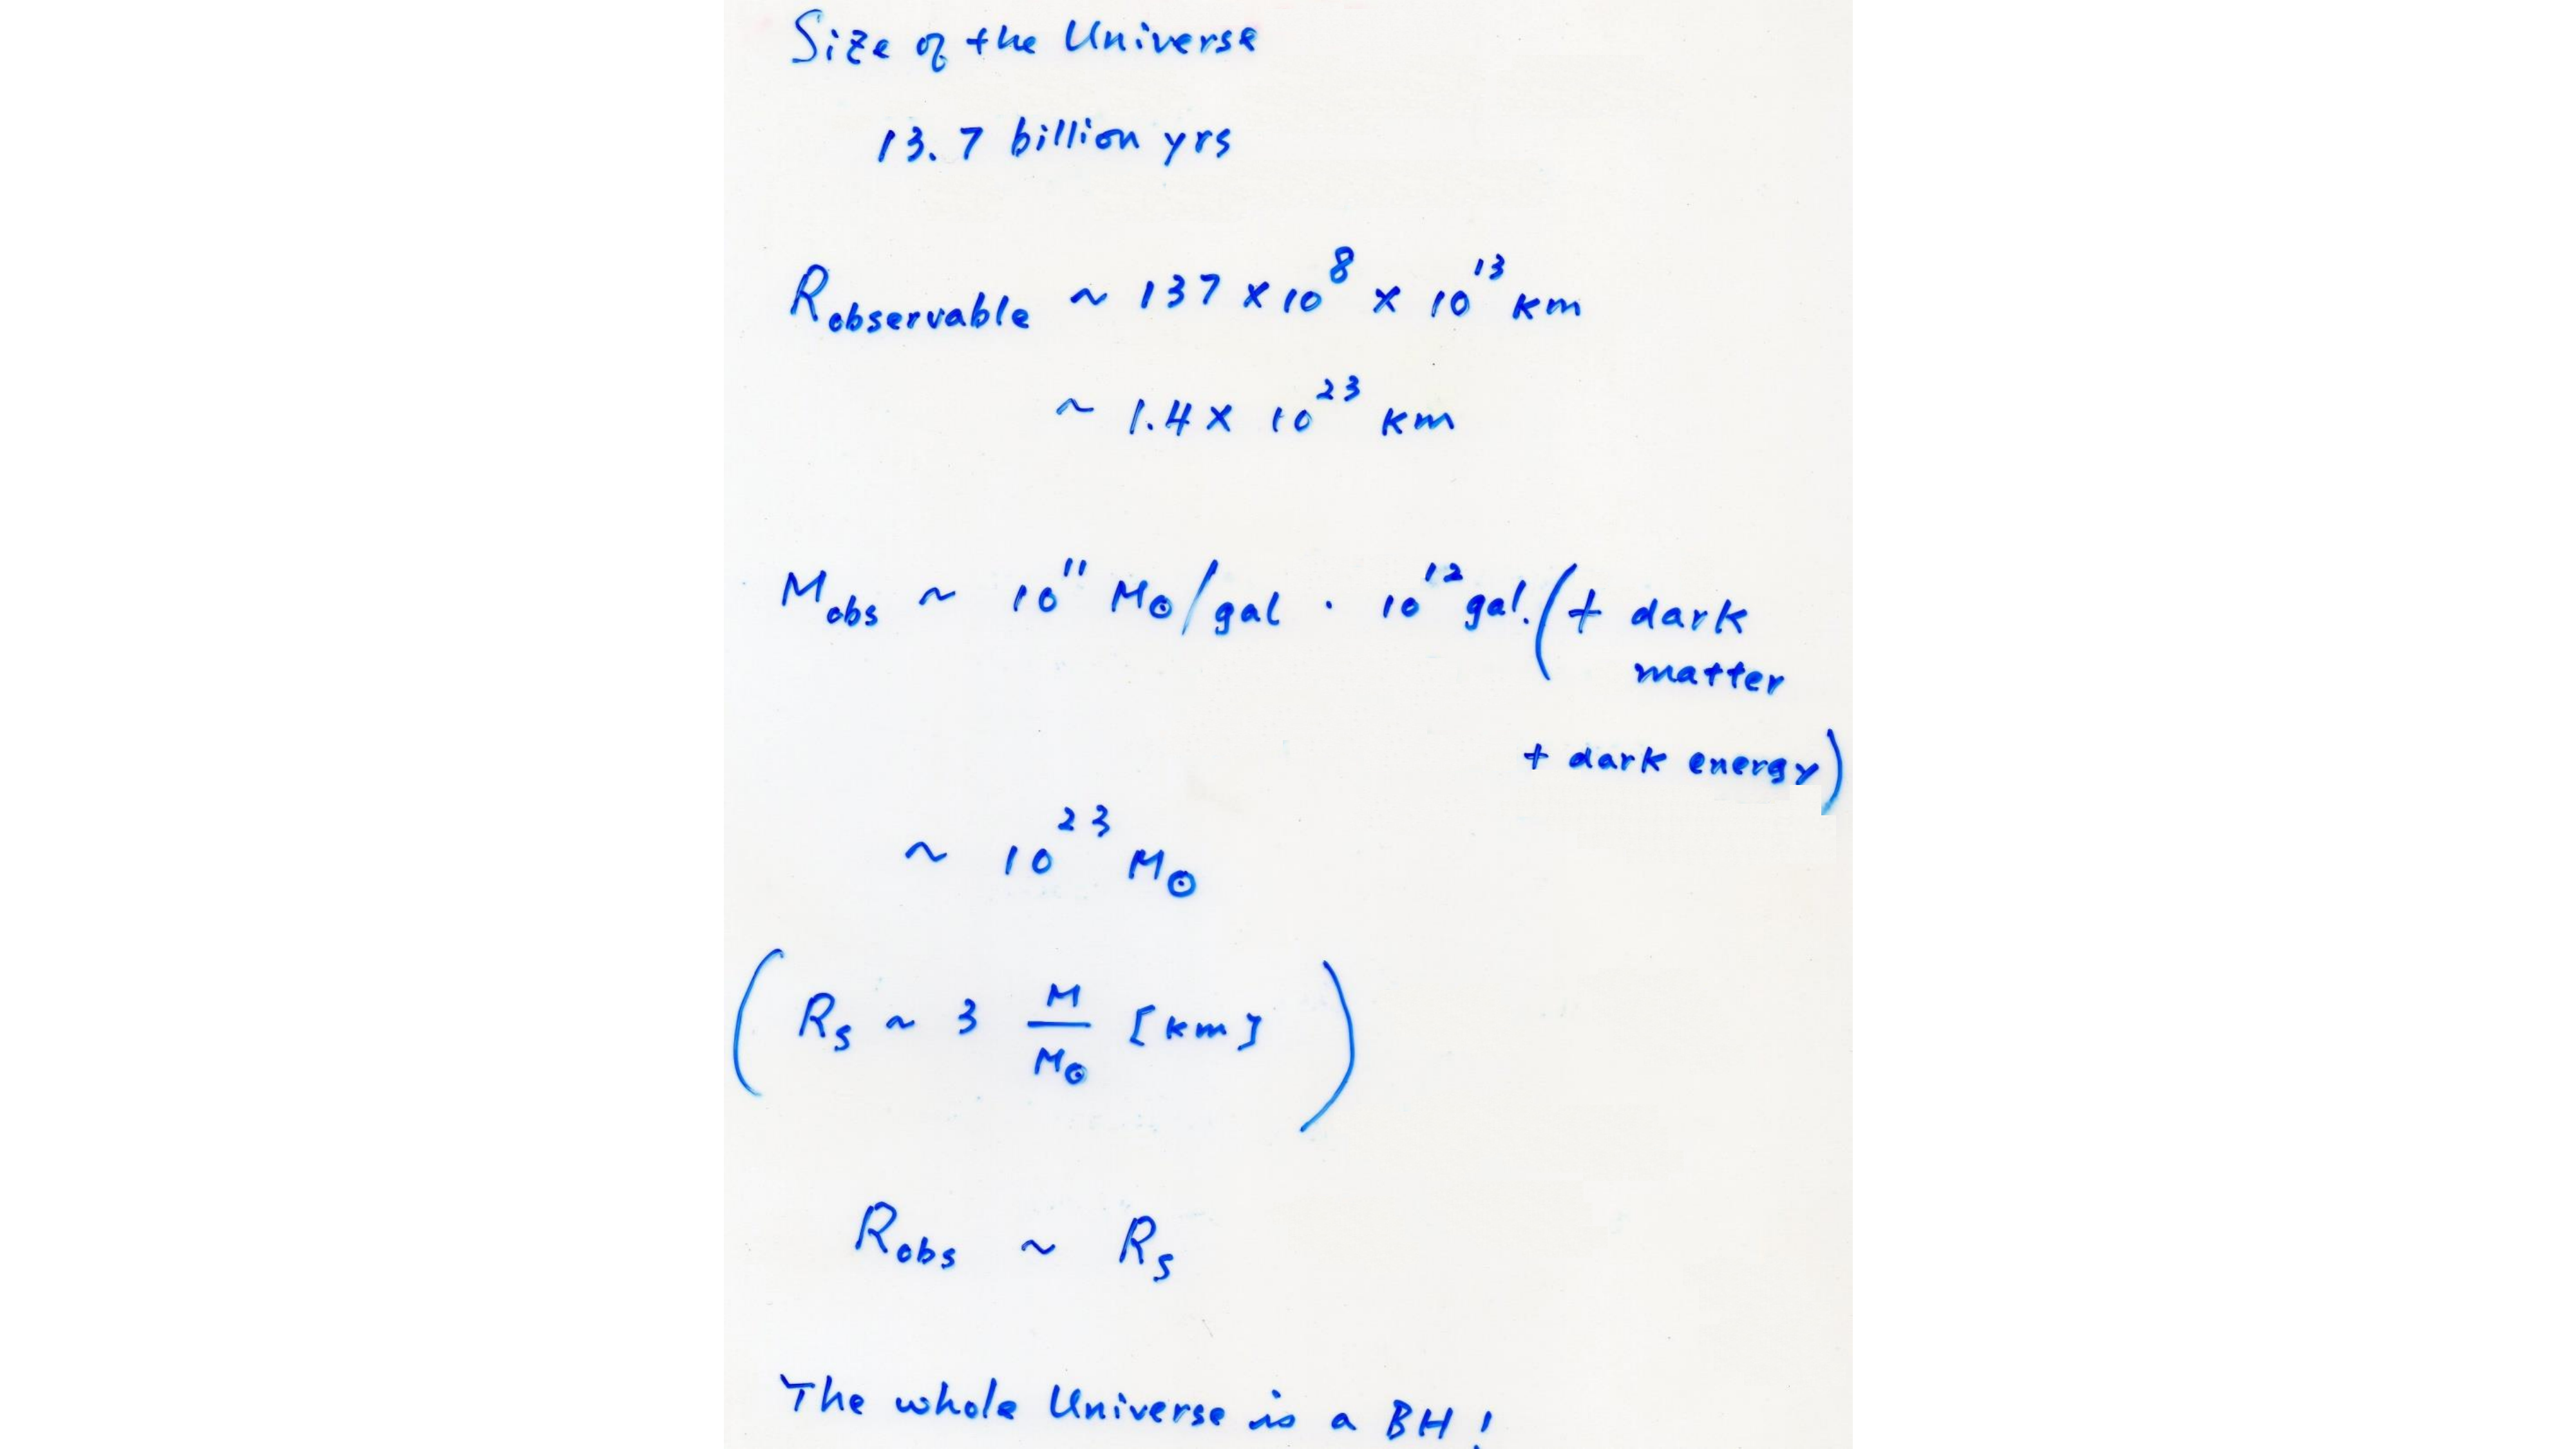 Size of the Universe
13.7 billion yrs
R observable ~ 137 × 10^8 × 10^13 km
~ 1.4 × 10^23 km
M obs ~ 10^11 M⊙/gal · 10^12 gal. (+ dark
matter
+ dark energy)
~ 10^23 M⊙
( Rs ~ 3 M/M⊙ [km] )
R obs ~ Rs
The whole Universe is a BH!